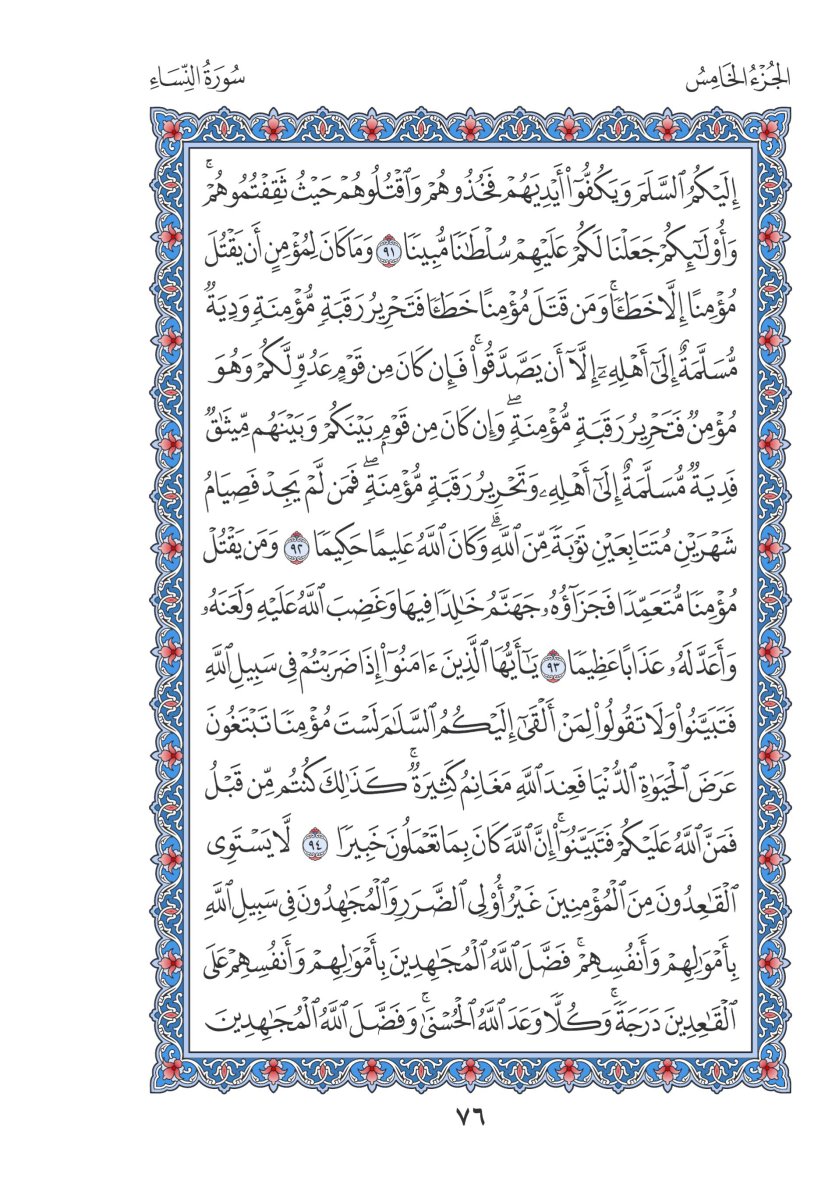 الجُزْءُ الخَامِسُ
سُورَةُ النِّسَاءِ
إِلَيْكُمُ ٱلسَّلَمَ وَيَكُفُّوٓا۟ أَيْدِيَهُمْ فَخُذُوهُمْ وَٱقْتُلُوهُمْ حَيْثُ ثَقِفْتُمُوهُمْۚ
وَأُو۟لَٰٓئِكُمْ جَعَلْنَا لَكُمْ عَلَيْهِمْ سُلْطَٰنًا مُّبِينًا ٩١ وَمَا كَانَ لِمُؤْمِنٍ أَن يَقْتُلَ
مُؤْمِنًا إِلَّا خَطَـًٔاۚ وَمَن قَتَلَ مُؤْمِنًا خَطَـًٔا فَتَحْرِيرُ رَقَبَةٍ مُّؤْمِنَةٍ وَدِيَةٌ
مُّسَلَّمَةٌ إِلَىٰٓ أَهْلِهِۦٓ إِلَّآ أَن يَصَّدَّقُوا۟ۚ فَإِن كَانَ مِن قَوْمٍ عَدُوٍّ لَّكُمْ وَهُوَ
مُؤْمِنٌ فَتَحْرِيرُ رَقَبَةٍ مُّؤْمِنَةٍۖ وَإِن كَانَ مِن قَوْمٍۭ بَيْنَكُمْ وَبَيْنَهُم مِّيثَٰقٌ
فَدِيَةٌ مُّسَلَّمَةٌ إِلَىٰٓ أَهْلِهِۦ وَتَحْرِيرُ رَقَبَةٍ مُّؤْمِنَةٍۖ فَمَن لَّمْ يَجِدْ فَصِيَامُ
شَهْرَيْنِ مُتَتَابِعَيْنِ تَوْبَةً مِّنَ ٱللَّهِۗ وَكَانَ ٱللَّهُ عَلِيمًا حَكِيمًا ٩٢ وَمَن يَقْتُلْ
مُؤْمِنًا مُّتَعَمِّدًا فَجَزَآؤُهُۥ جَهَنَّمُ خَٰلِدًا فِيهَا وَغَضِبَ ٱللَّهُ عَلَيْهِ وَلَعَنَهُۥ
وَأَعَدَّ لَهُۥ عَذَابًا عَظِيمًا ٩٣ يَٰٓأَيُّهَا ٱلَّذِينَ ءَامَنُوٓا۟ إِذَا ضَرَبْتُمْ فِى سَبِيلِ ٱللَّهِ
فَتَبَيَّنُوا۟ وَلَا تَقُولُوا۟ لِمَنْ أَلْقَىٰٓ إِلَيْكُمُ ٱلسَّلَٰمَ لَسْتَ مُؤْمِنًا تَبْتَغُونَ
عَرَضَ ٱلْحَيَوٰةِ ٱلدُّنْيَا فَعِندَ ٱللَّهِ مَغَانِمُ كَثِيرَةٌۚ كَذَٰلِكَ كُنتُم مِّن قَبْلُ
فَمَنَّ ٱللَّهُ عَلَيْكُمْ فَتَبَيَّنُوٓا۟ۚ إِنَّ ٱللَّهَ كَانَ بِمَا تَعْمَلُونَ خَبِيرًا ٩٤ لَّا يَسْتَوِى
ٱلْقَٰعِدُونَ مِنَ ٱلْمُؤْمِنِينَ غَيْرُ أُو۟لِى ٱلضَّرَرِ وَٱلْمُجَٰهِدُونَ فِى سَبِيلِ ٱللَّهِ
بِأَمْوَٰلِهِمْ وَأَنفُسِهِمْۚ فَضَّلَ ٱللَّهُ ٱلْمُجَٰهِدِينَ بِأَمْوَٰلِهِمْ وَأَنفُسِهِمْ عَلَى
ٱلْقَٰعِدِينَ دَرَجَةًۚ وَكُلًّا وَعَدَ ٱللَّهُ ٱلْحُسْنَىٰۚ وَفَضَّلَ ٱللَّهُ ٱلْمُجَٰهِدِينَ
٧٦